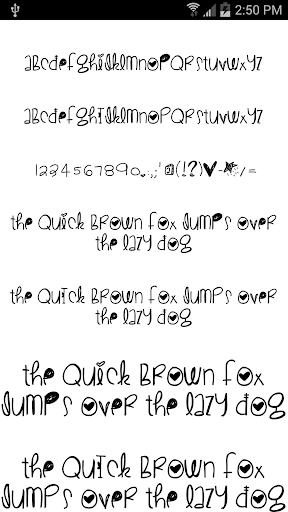 2:50 PM
aBcdefghiJklmnoPQRstuvwxyz
aBcdefghIJklmnoPQRstuvwxyz
1234567890.,:;'"@(!?)♥-*/=
the Quick Brown fox Jumps over
the lazy dog
the QuIck Brown fox JumPs oveR
the lazy dog
the Quick Brown fox
Jumps over the lazy dog
the QuIck Brown fox
JumPs oveR the lazy dog